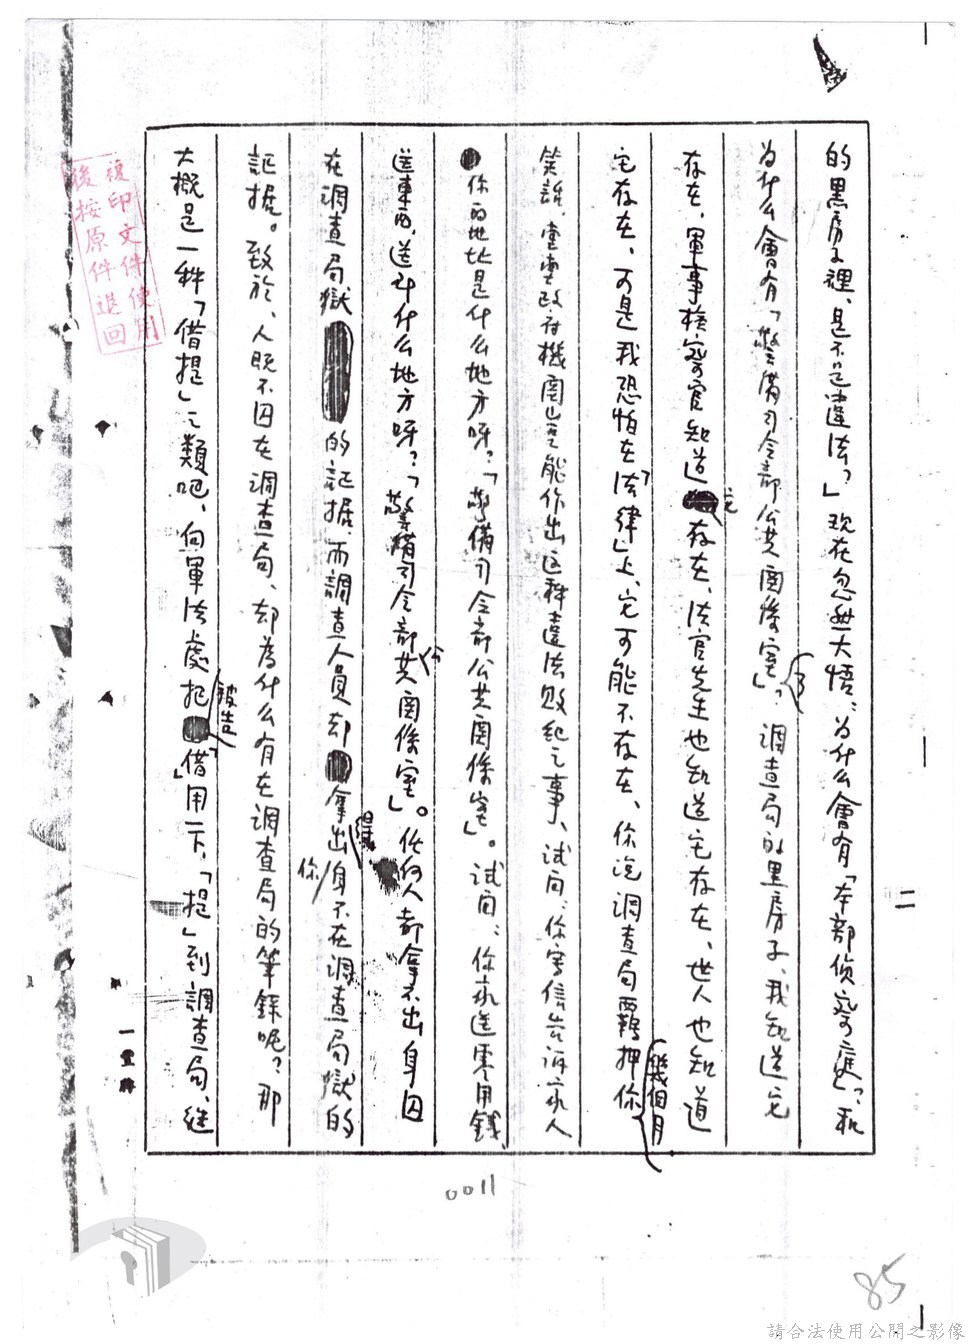 的黑房子裡、是不是違法?」現在忽然大悟:為什么會有「本部偵察庭」?和
為什么會有「警備司令部公共関係室」?調查局的黑房子、我知道它
存在、軍事檢察官知道它存在、法官先生也知道它存在、世人也知道
它存在、可是我恐怕在「法律」上、它可能不存在、你說調查局覊押你幾個月
笑話、堂堂政府機関豈能作出这种違法敗紀之事、試问:你寫信告訴家人
你的地址是什么地方呀?「警備司令部公共関係室」。試问、你家送零用錢、
送東西、送到什么地方呀?「警備司令部公共関係室」。任何人都拿不出身囚
在調查局獄的証据、而調查人員却拿得出你身不在調查局獄的
証据。致於、人既不囚在調查局、却為什么有在調查局的筆錄呢?那
大概是一种「借提」之類吧、向軍法處把被告「借」用一下、「提」到調查局、继
二
一堂牌
複印文件使用
後按原件退回
0011
85
請合法使用公開之影像